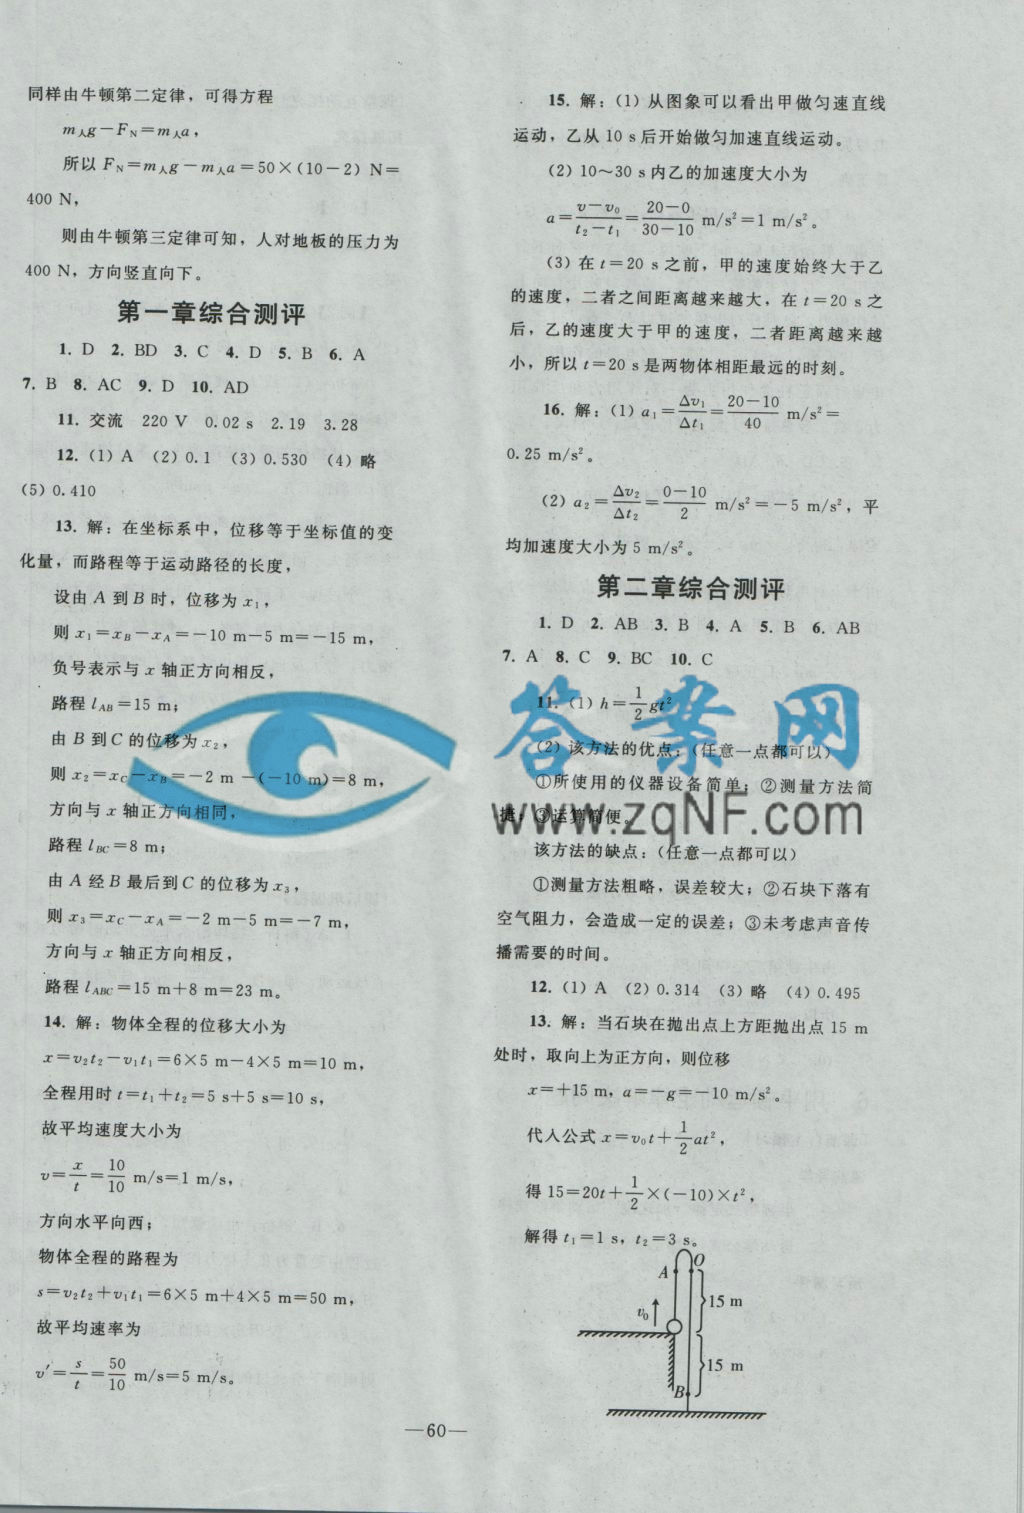 同样由牛顿第二定律，可得方程
m人g－FN＝m人a，
所以 FN＝m人g－m人a＝50×(10－2) N＝
400 N，
则由牛顿第三定律可知，人对地板的压力为
400 N，方向竖直向下。
第一章综合测评
1. D 2. BD 3. C 4. D 5. B 6. A
7. B 8. AC 9. D 10. AD
11. 交流 220 V 0.02 s 2.19 3.28
12. (1)A (2)0.1 (3)0.530 (4)略
(5)0.410
13. 解：在坐标系中，位移等于坐标值的变
化量，而路程等于运动路径的长度，
设由 A 到 B 时，位移为 x1，
则 x1＝xB－xA＝－10 m－5 m＝－15 m，
负号表示与 x 轴正方向相反，
路程 lAB＝15 m；
由 B 到 C 的位移为 x2，
则 x2＝xC－xB＝－2 m－(－10 m)＝8 m，
方向与 x 轴正方向相同，
路程 lBC＝8 m；
由 A 经 B 最后到 C 的位移为 x3，
则 x3＝xC－xA＝－2 m－5 m＝－7 m，
方向与 x 轴正方向相反，
路程 lABC＝15 m＋8 m＝23 m。
14. 解：物体全程的位移大小为
x＝v2t2－v1t1＝6×5 m－4×5 m＝10 m，
全程用时 t＝t1＋t2＝5 s＋5 s＝10 s，
故平均速度大小为
v＝x/t＝10/10 m/s＝1 m/s，
方向水平向西；
物体全程的路程为
s＝v2t2＋v1t1＝6×5 m＋4×5 m＝50 m，
故平均速率为
v′＝s/t＝50/10 m/s＝5 m/s。
15. 解：(1)从图象可以看出甲做匀速直线
运动，乙从 10 s 后开始做匀加速直线运动。
(2)10～30 s 内乙的加速度大小为
a＝(v－v0)/(t2－t1)＝(20－0)/(30－10) m/s²＝1 m/s²。
(3)在 t＝20 s 之前，甲的速度始终大于乙
的速度，二者之间距离越来越大，在 t＝20 s 之
后，乙的速度大于甲的速度，二者距离越来越
小，所以 t＝20 s 是两物体相距最远的时刻。
16. 解：(1)a1＝Δv1/Δt1＝(20－10)/40 m/s²＝
0.25 m/s²。
(2)a2＝Δv2/Δt2＝(0－10)/2 m/s²＝－5 m/s²，平
均加速度大小为 5 m/s²。
第二章综合测评
1. D 2. AB 3. B 4. A 5. B 6. AB
7. A 8. C 9. BC 10. C
11. (1)h＝1/2gt²
(2)该方法的优点：(任意一点都可以)
①所使用的仪器设备简单；②测量方法简
捷；③运算简便。
该方法的缺点：(任意一点都可以)
①测量方法粗略，误差较大；②石块下落有
空气阻力，会造成一定的误差；③未考虑声音传
播需要的时间。
12. (1)A (2)0.314 (3)略 (4)0.495
13. 解：当石块在抛出点上方距抛出点 15 m
处时，取向上为正方向，则位移
x＝＋15 m，a＝－g＝－10 m/s²。
代入公式 x＝v0t＋1/2at²，
得 15＝20t＋1/2×(－10)×t²，
解得 t1＝1 s，t2＝3 s。
A O
v0 15 m
15 m
B
—60—
答案网
www.zqNF.com